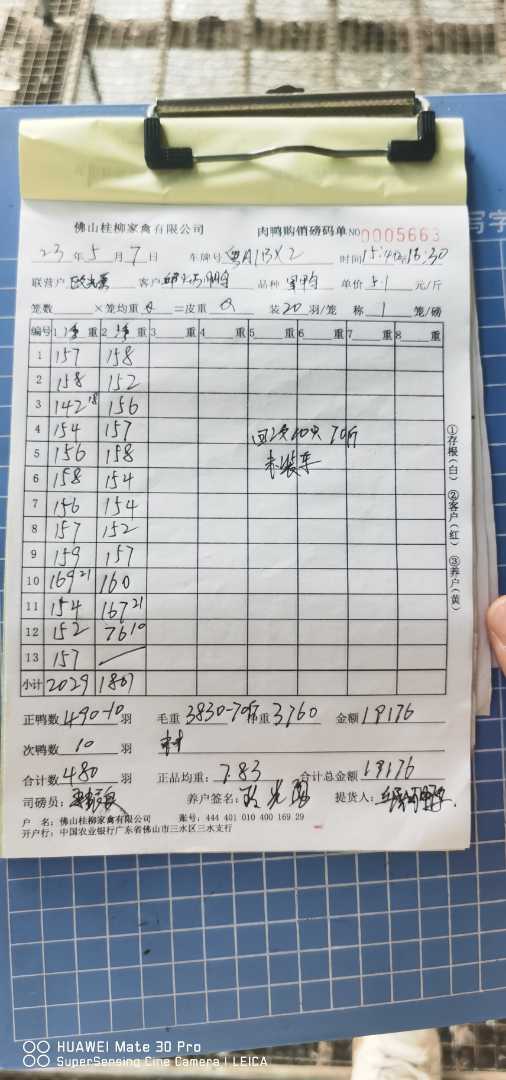 佛山桂柳家禽有限公司 肉鸭购销磅码单 NO 0005663
23 年 5 月 7 日 车牌号 时间 15:40 16:30
联营户 客户 品种 单价 5.1 元/斤
笼数 ×笼均重 =皮重 装 20 羽/笼 称 1 笼/磅
编号 1 净 重 2 净 重 3 重 4 重 5 重 6 重 7 重 8 重
1 157 158
2 158 152
3 142 18 156
4 154 157
5 156 158
6 158 154
7 156 154
8 157 152
9 159 157
10 169 21 160
11 154 167 21
12 152 76 10
13 157
小计 2029 1807
70斤
未装车
①存根(白) ②客户(红) ③养户(黄)
正鸭数 490-10 羽 毛重 3830-70斤 重 3760 金额 19176
次鸭数 10 羽
合计数 480 羽 正品均重: 7.83 合计总金额 19176
司磅员: 养户签名: 提货人:
户 名: 佛山桂柳家禽有限公司 账号: 444 401 010 400 169 29
开户行: 中国农业银行广东省佛山市三水区三水支行
写字
HUAWEI Mate 30 Pro
SuperSensing Cine Camera | LEICA